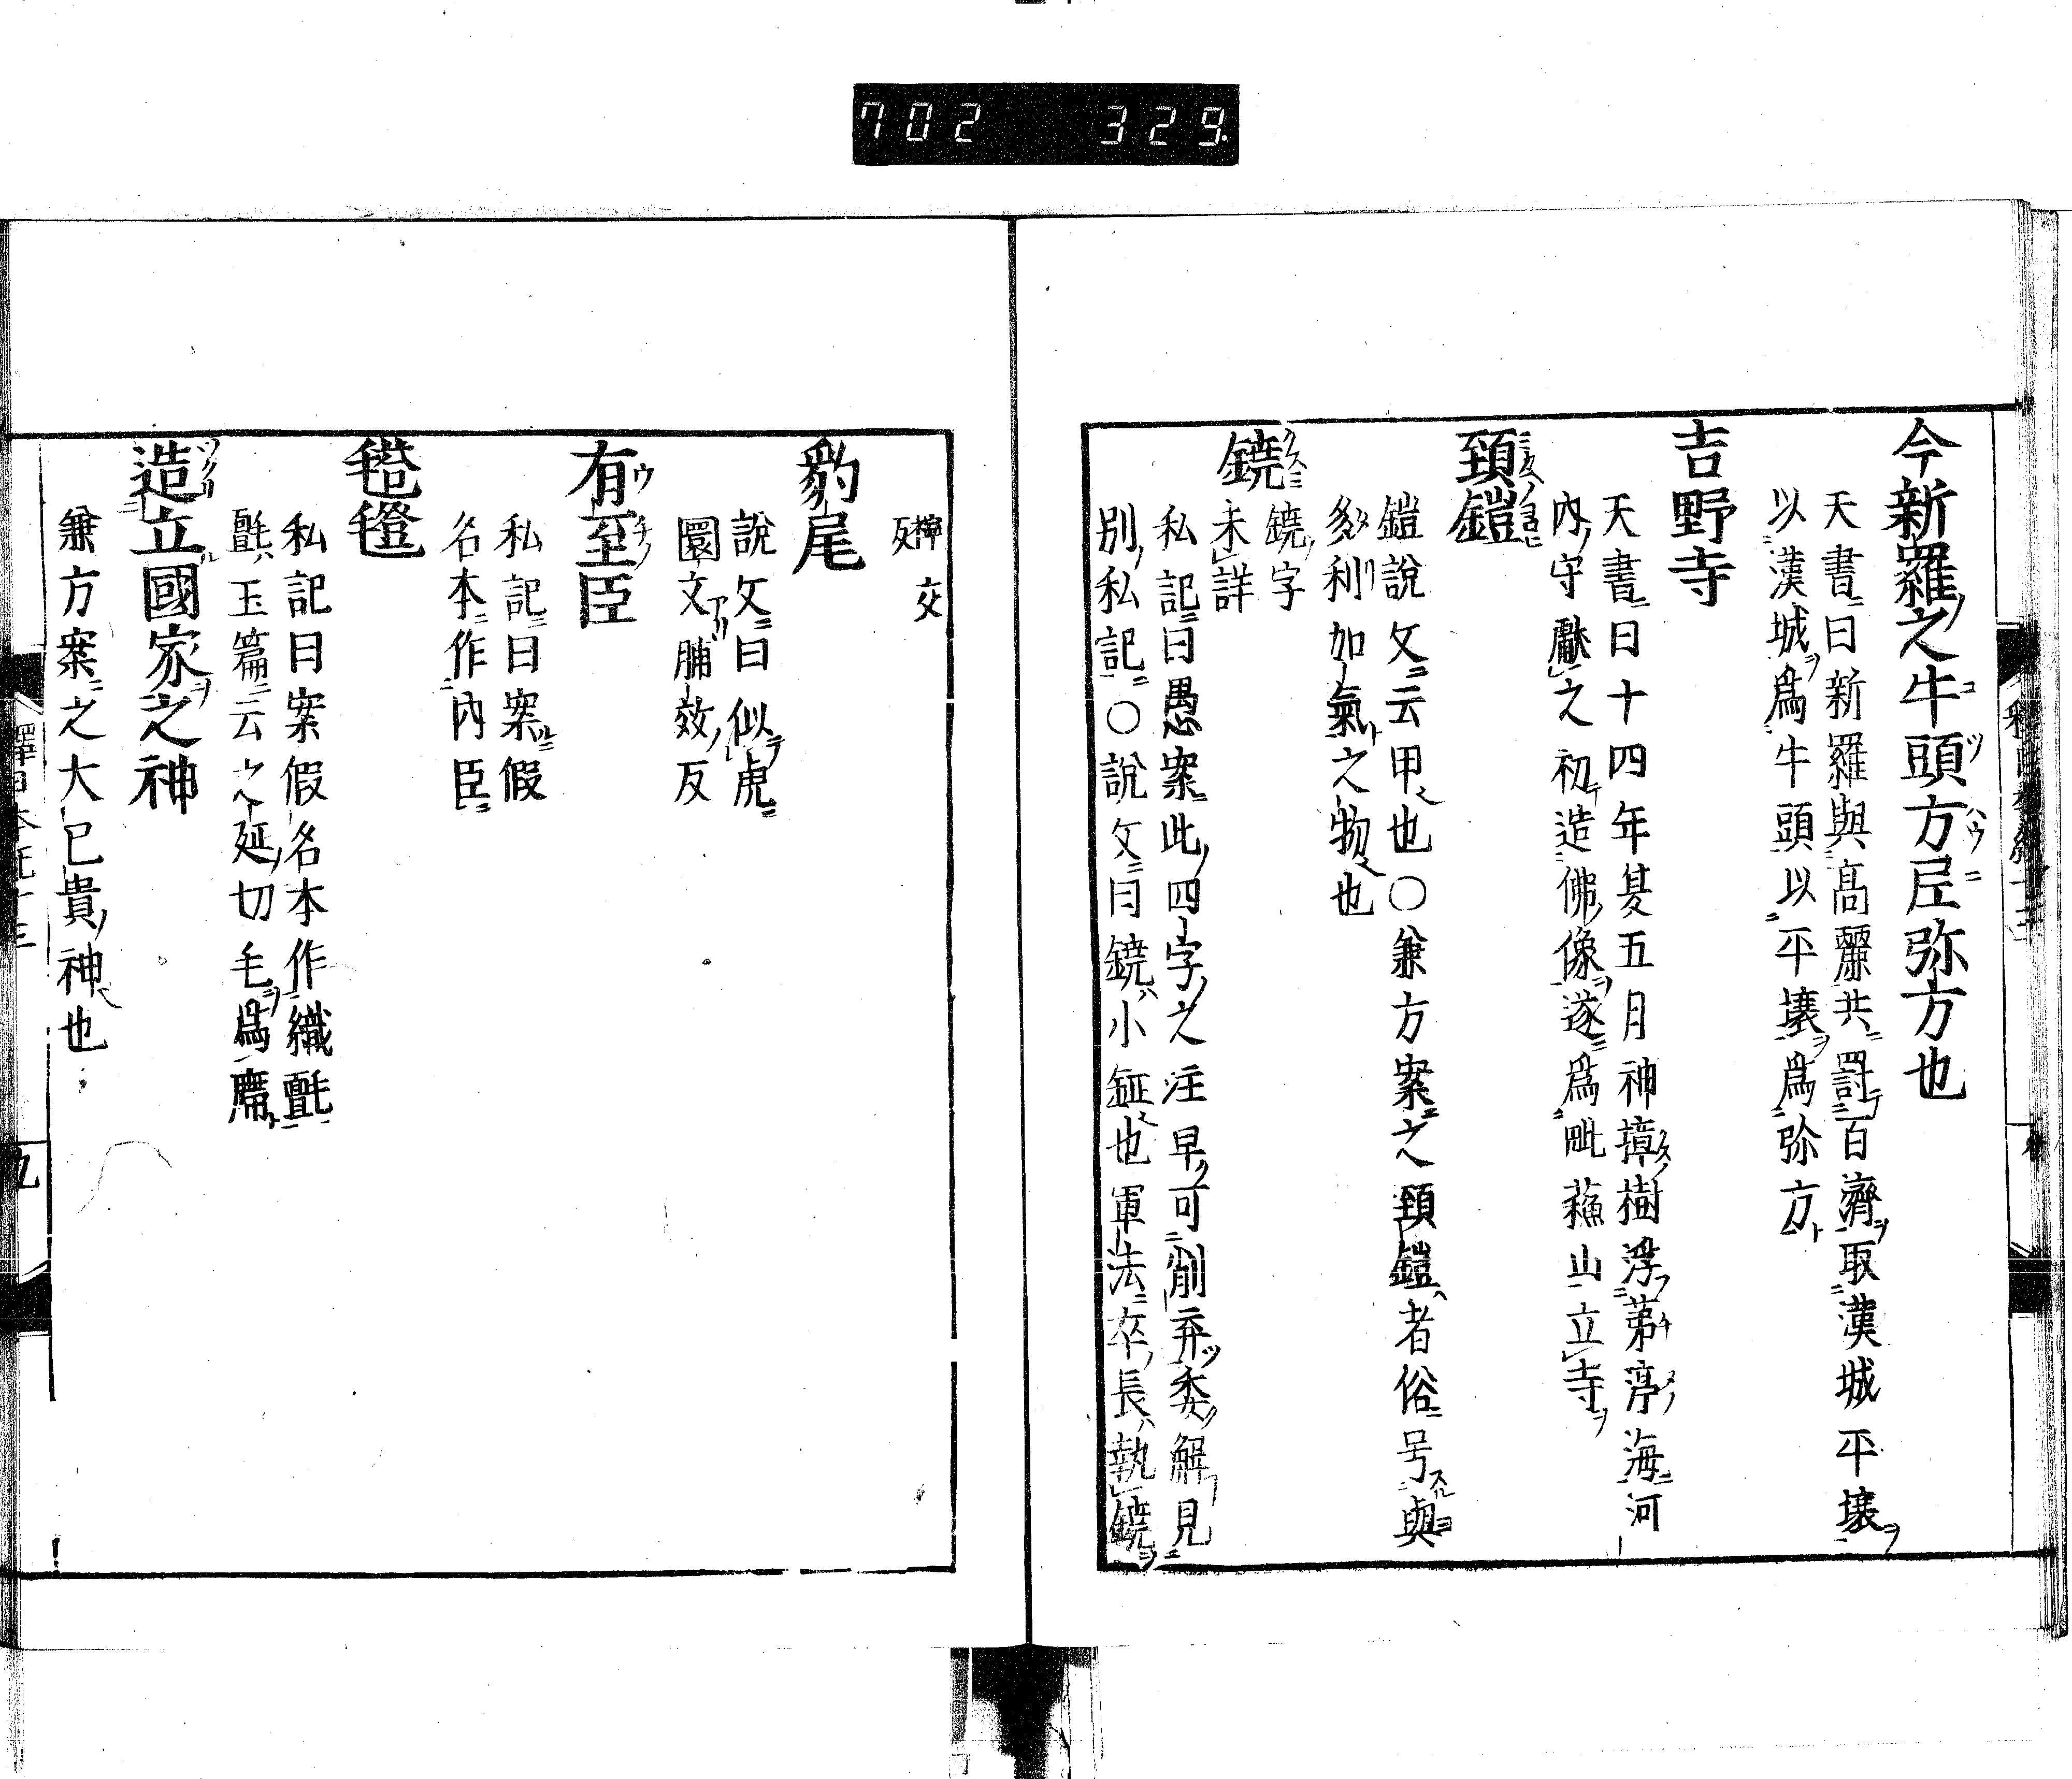 702 329
今新羅之牛頭方尼弥方也
天書曰新羅與高麗共罸百濟取漢城平壤
以漢城爲牛頭以平壤爲弥方
吉野寺
天書曰十四年夏五月神樟樹浮茅渟海河
內守獻之初造佛像遂爲毗蘓山立寺
頚鎧
鎧說文云甲也〇兼方案之頚鎧者俗号與
多利加氣之物也
鐃字
未詳
鐃
私記曰愚案此四字之注早可削弃委觧見
別私記〇說文曰鐃小鉦也軍法卒長執鐃
樟交
反
豹尾
說文曰似虎
圜文脯效反
有至臣
私記曰案假
名本作內臣
毾㲪
私記曰案假名本作織氈
氈玉篇云之延切毛爲席
造立國家之神
兼方案之大已貴神也
九